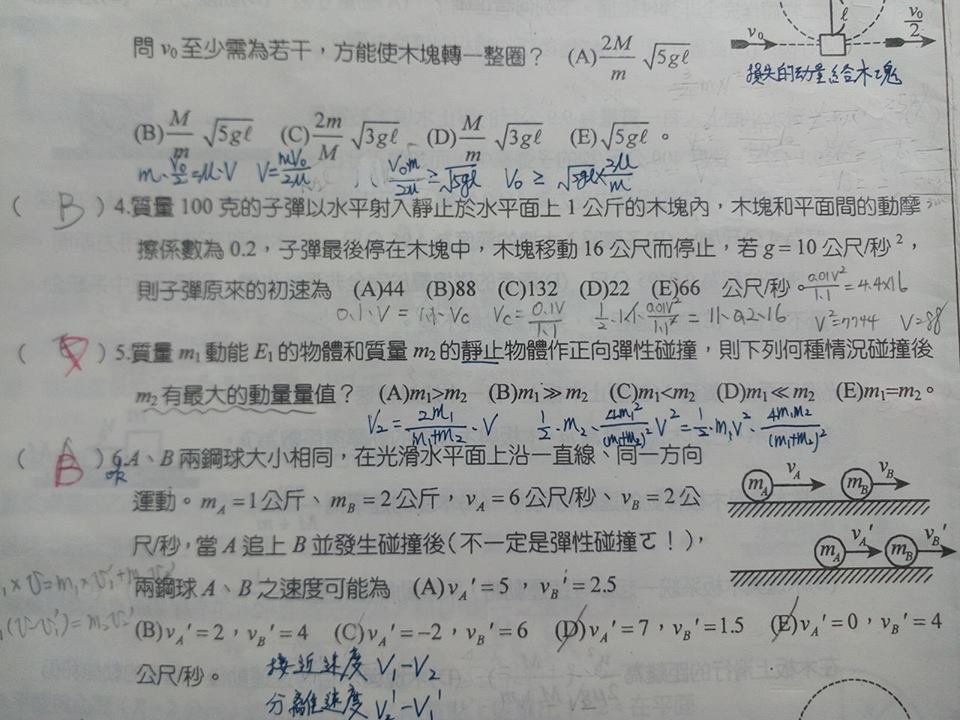 v₀ ℓ v₀/2
問 v₀ 至少需為若干，方能使木塊轉一整圈？ (A) 2M/m √5gℓ
損失的動量給木塊
(B) M/m √5gℓ (C) 2m/M √3gℓ (D) M/m √3gℓ (E) √5gℓ 。
m·v₀/2=M·V V=mV₀/2M ∴ V₀m/2M ≥ √5gl V₀ ≥ √5gl × 2M/m
( B ) 4.質量 100 克的子彈以水平射入靜止於水平面上 1 公斤的木塊內，木塊和平面間的動摩
擦係數為 0.2，子彈最後停在木塊中，木塊移動 16 公尺而停止，若 g = 10 公尺/秒²，
則子彈原來的初速為 (A)44 (B)88 (C)132 (D)22 (E)66 公尺/秒。 0.01V²/1.1 = 4.4×16
0.1·V = 1.1·Vc Vc = 0.1V/1.1 1/2·1.1·0.01V²/1.1² = 11·0.2·16 V²=7744 V=88
( ) 5.質量 m₁ 動能 E₁ 的物體和質量 m₂ 的靜止物體作正向彈性碰撞，則下列何種情況碰撞後
m₂ 有最大的動量量值？ (A)m₁>m₂ (B)m₁≫m₂ (C)m₁<m₂ (D)m₁≪m₂ (E)m₁=m₂。
V₂ = 2m₁/m₁+m₂ · V 1/2·m₂·4m₁²/(m₁+m₂)² V² = 1/2·m₁V²·4m₁m₂/(m₁+m₂)²
( B ) 6.A、B 兩鋼球大小相同，在光滑水平面上沿一直線、同一方向
運動。m_A = 1 公斤、m_B = 2 公斤，v_A = 6 公尺/秒、v_B = 2 公
尺/秒，當 A 追上 B 並發生碰撞後（不一定是彈性碰撞ㄛ！），
兩鋼球 A、B 之速度可能為 (A) v_A′ = 5，v_B′ = 2.5
(B) v_A′ = 2，v_B′ = 4 (C) v_A′ = −2，v_B′ = 6 (D) v_A′ = 7，v_B′ = 1.5 (E) v_A′ = 0，v_B′ = 4
公尺/秒。
接近速度 V₁-V₂
分離速度 V₂′-V₁′
m_A v_A m_B v_B
m_A v_A′ m_B v_B′